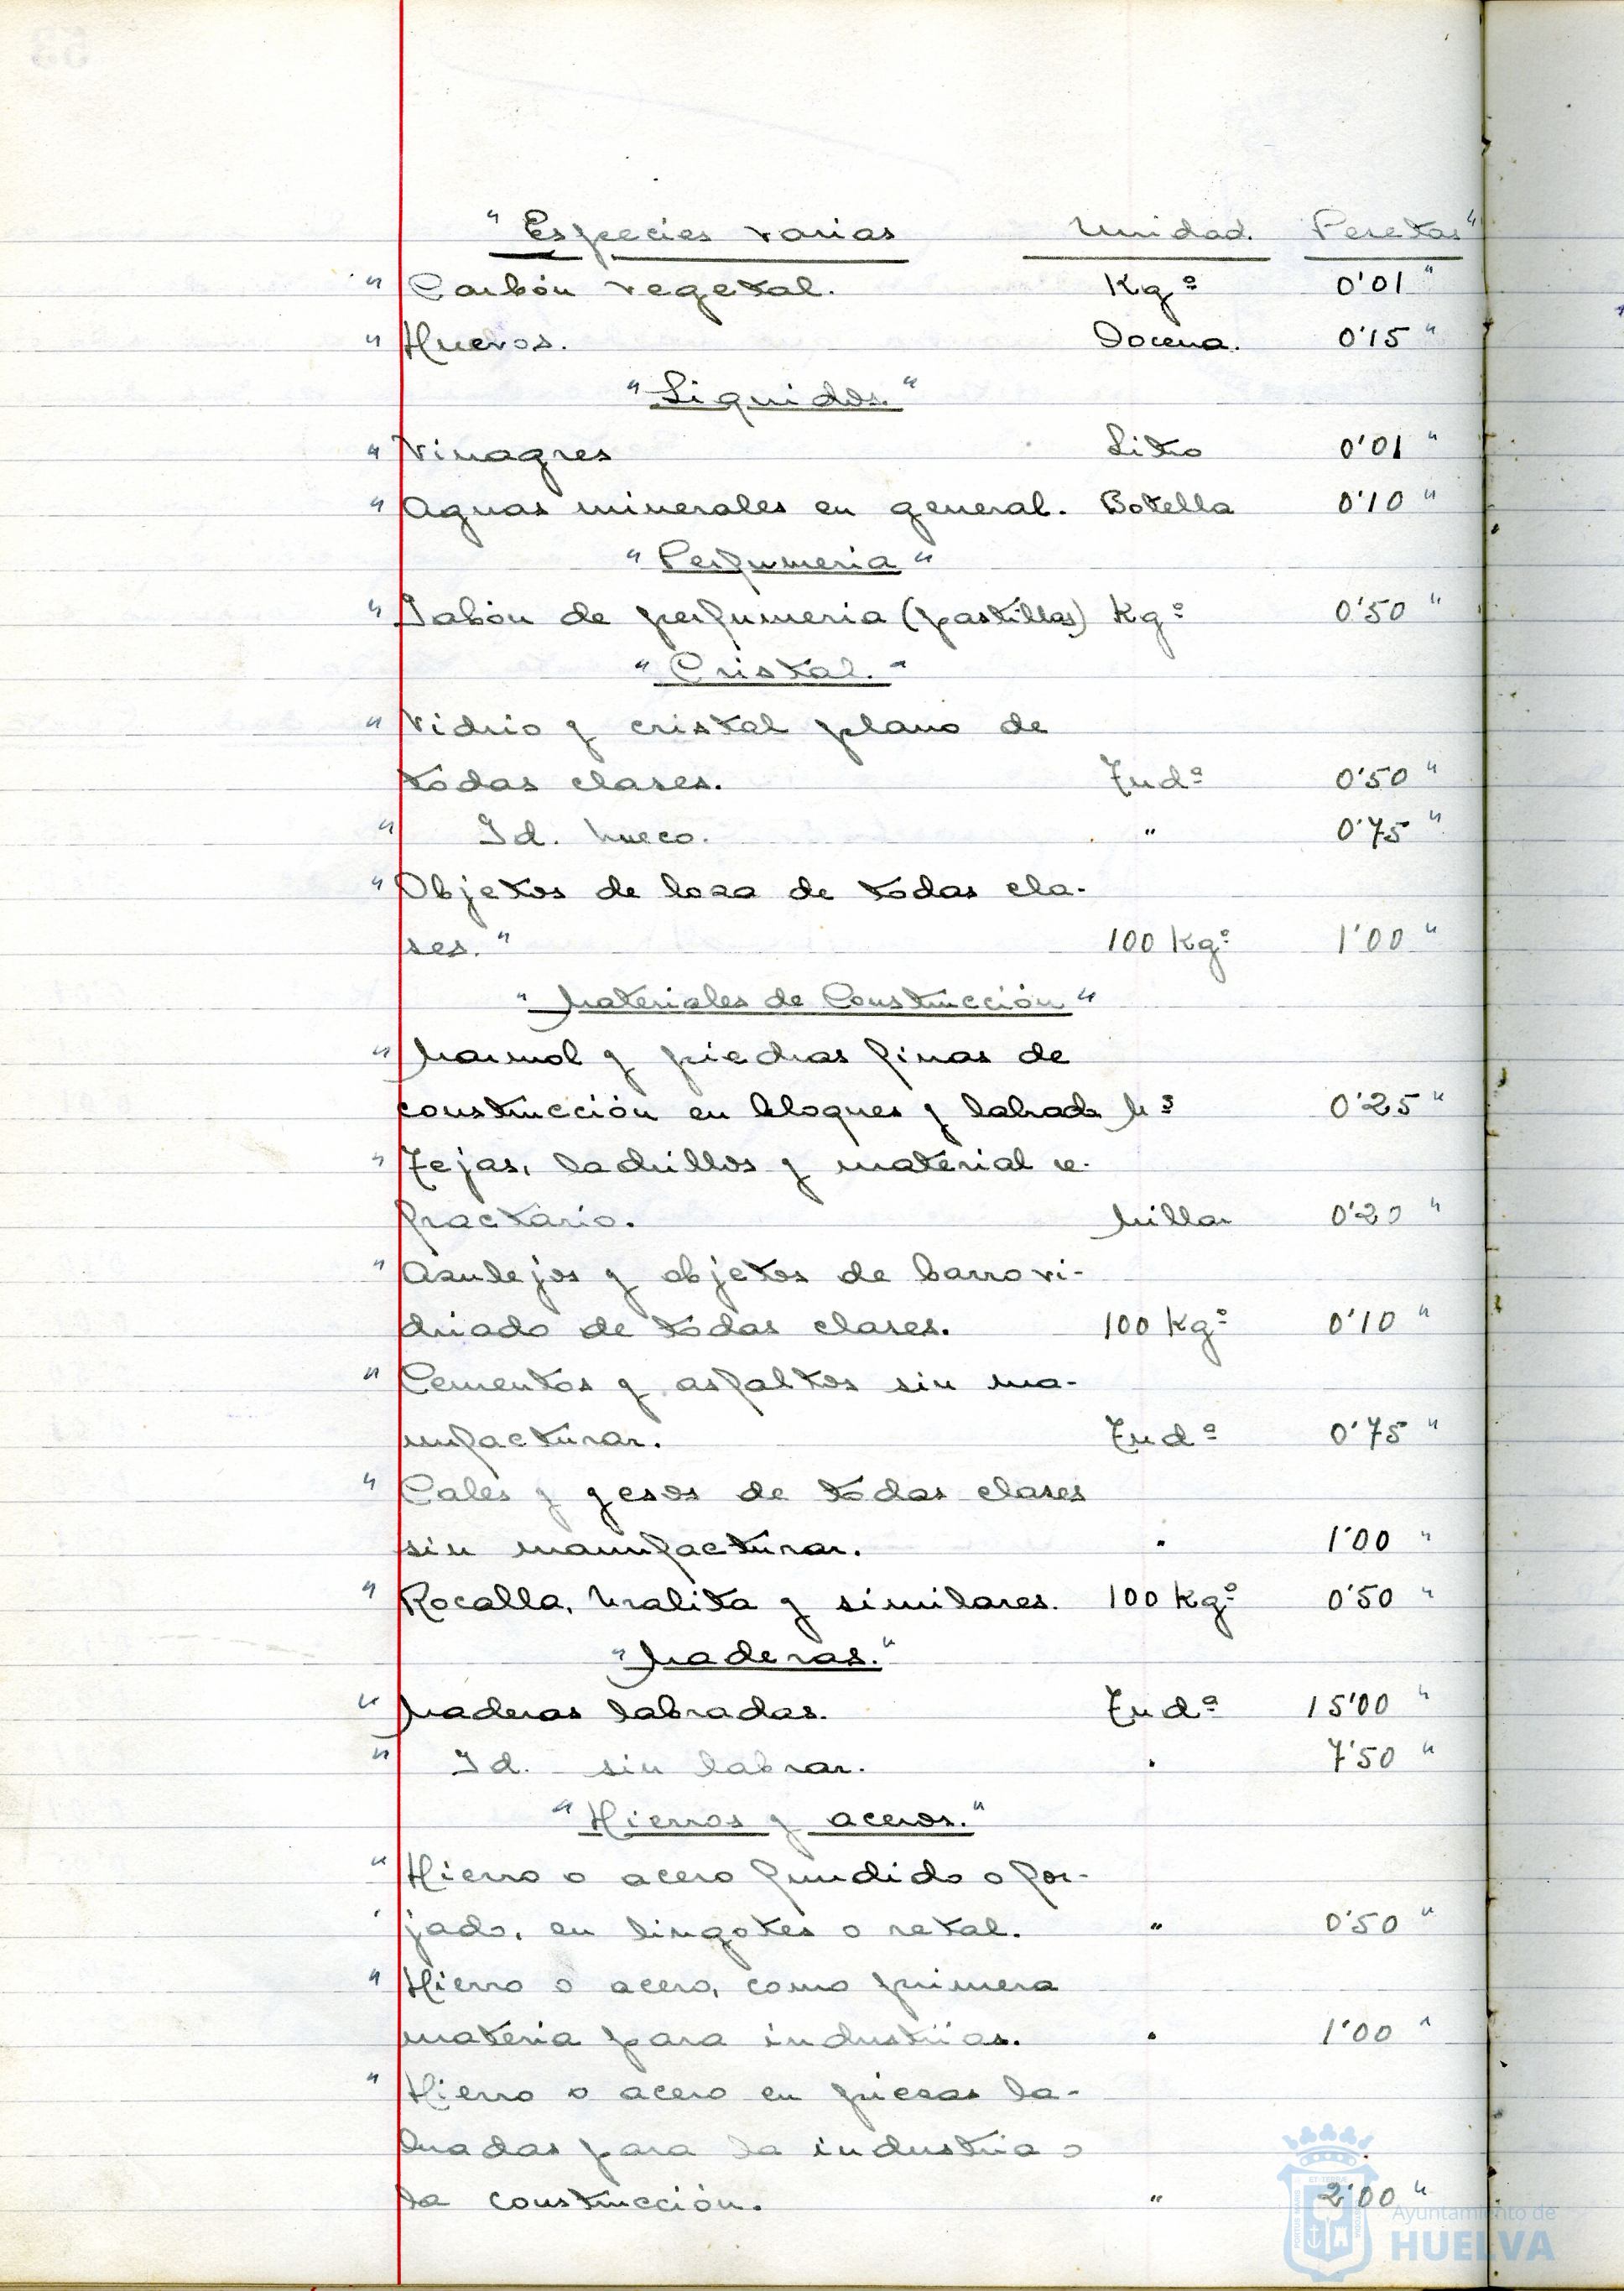 " Especies varias Unidad. Pesetas "
" Carbón vegetal. Kgº 0'01 "
" Huevos. Docena. 0'15 "
" Liquidos. "
" Vinagres Litro 0'01 "
" Aguas minerales en general. Botella 0'10 "
" Perfumeria "
" Jabón de perfumeria (pastillas) Kgº 0'50 "
" Cristal. "
" Vidrio y cristal plano de
todas clases. Tndª 0'50 "
" Id. hueco. " 0'75 "
" Objetos de loza de todas cla-
ses. " 100 Kgº 1'00 "
" Materiales de Construcción "
" Marmol y piedras finas de
construcción en bloques y labrado M³ 0'25 "
" Tejas, ladrillos y material re-
fractario. Millar 0'20 "
" Azulejos y objetos de barro vi-
driado de todas clases. 100 Kgº 0'10 "
" Cementos y asfaltos sin ma-
nufacturar. Tndª 0'75 "
" Cales y yesos de todas clases
sin manufacturar. " 1'00 "
" Rocalla, Uralita y similares. 100 Kgº 0'50 "
" Maderas. "
" Maderas labradas. Tndª 15'00 "
" Id. sin labrar. " 7'50 "
" Hierros y aceros. "
" Hierro o acero fundido o for-
jado, en lingotes o retal. " 0'50 "
" Hierro o acero, como primera
materia para industrias. " 1'00 "
" Hierro o acero en piezas la-
bradas para la industria o
la construcción. " 2'00 "
Ayuntamiento de
HUELVA